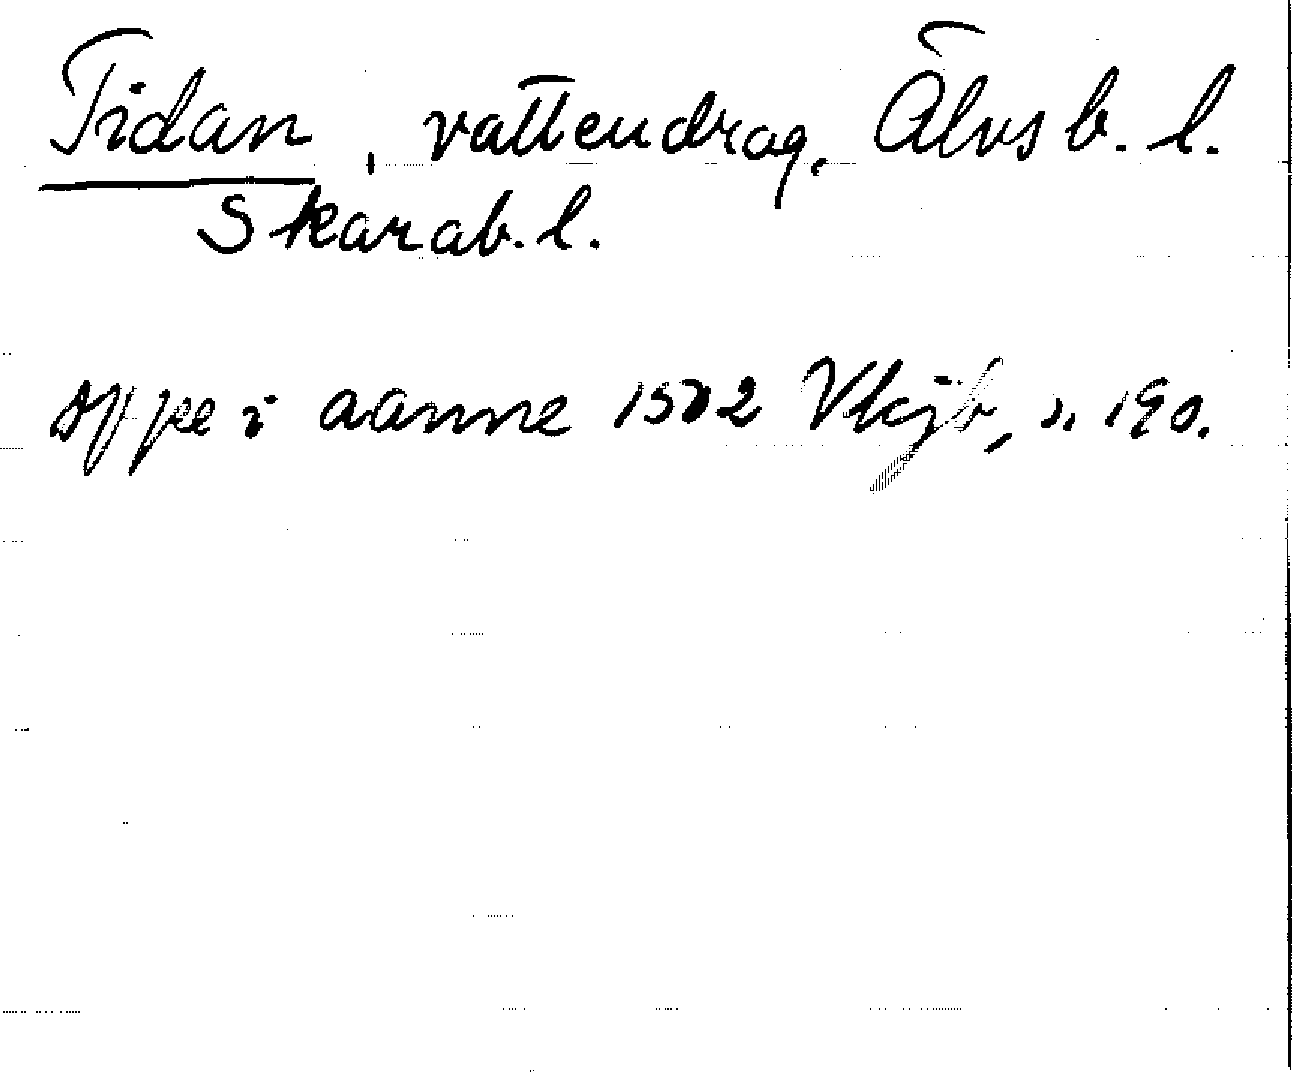 Tidan, vattendrag, Älvsb. l.
Skarab. l.
i aanne 1502 s. 190.